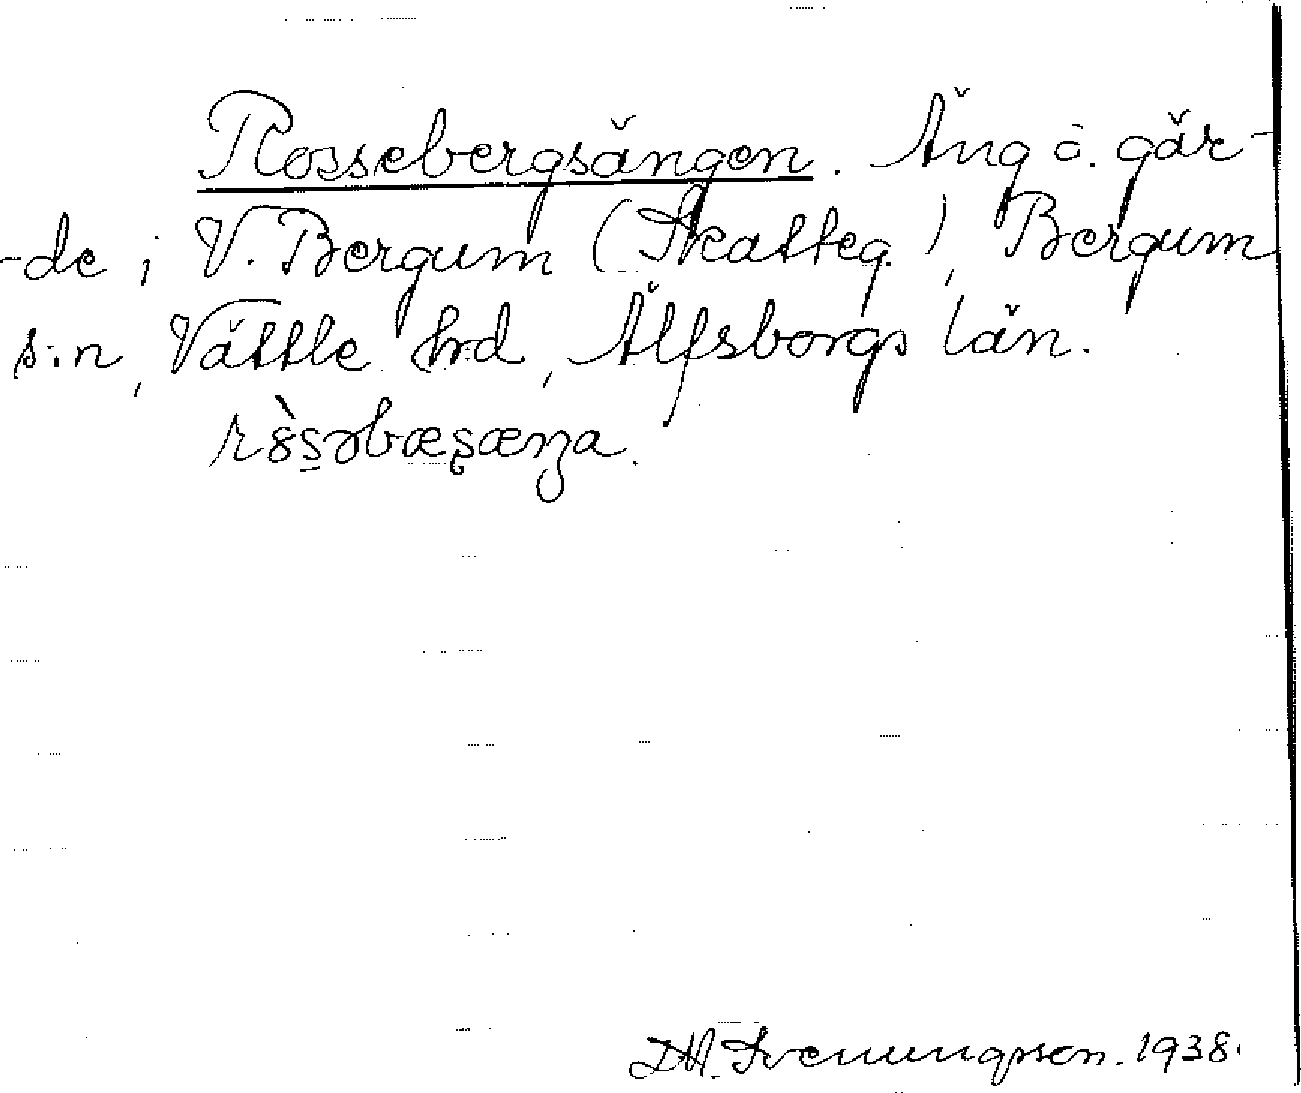 Rossebergsängen. Äng o. gär-
-de i V. Bergum (Skatteg.), Bergum
s:n, Vättle hrd, Älfsborgs län.
Svenungsson. 1938.